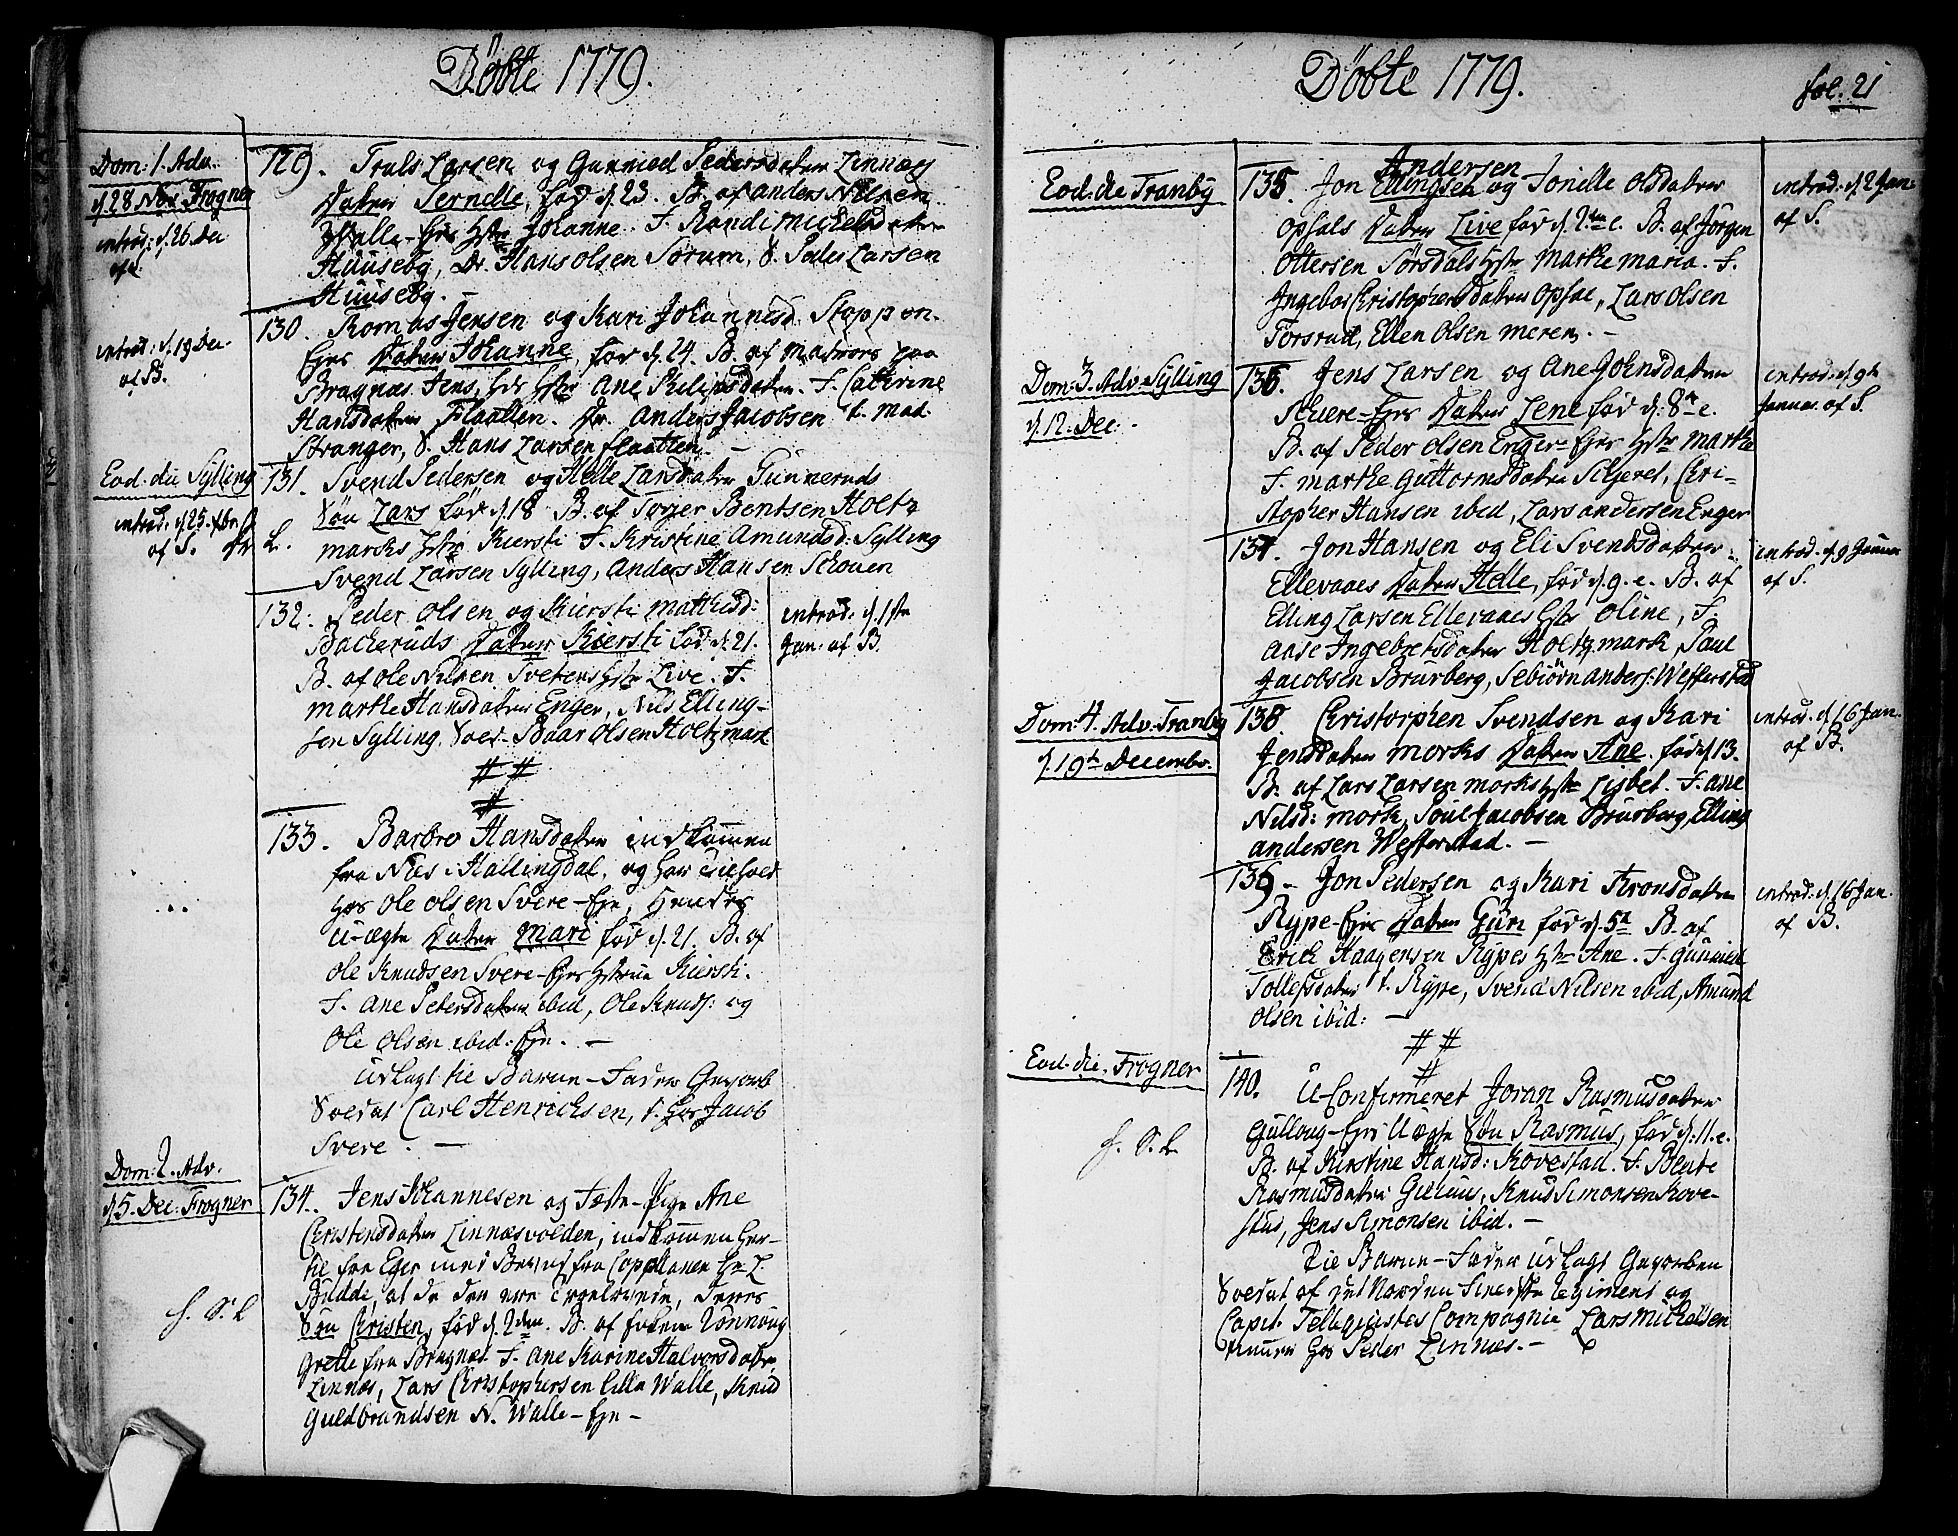 Döbte 1779.
Dom: 1. Adv.
d. 28 Nov. Frogner
introd: d. 26 Dec
129. Truls Larsen og Gunnild Pedersdatter Linnæs
Datter Pernelle, föd d. 23. B. af Anders Nilsen
Walle-Ejes hstr Johanne. F. Randi Michelsdatter
Huuseby, Dr. Hans Olsen Sörum, S. Peder Larsen
Huuseby. -
introd: d. 19 Dec.
af B.
130. Romas Jensen og Kari Johannesd. Stoppen-
Ejes Datter Johanne, föd d. 24. B. af Matros paa
Bragnæs Jens, hstr Ane Philipsdatter. F. Cathrine
Hansdatter Flaatten. Dr. Anders Jacobsen t. Mad.
Stranger, S. Hans Larsen Flaatten. -
Eod. die Sylling
introd. d. 25. febr
af S.
131. Svend Pedersen og Helle Larsdatter Gunneruds
Sön Lars föd d. 18 B. af Torger Bentsen Holtz
marks hstr Kiersti F. Kristine Amundsd: Sylling
Svend Larsen Sylling, Anders Hansen Schouen
132. Peder Olsen og Kiersti Mathisd:
Backeruds Datter Kiersti föd d. 21.
B. af Ole Nilsen Svetens hstr Live. F.
Marthe Hansdatter Enger, Nils Elling-
sen Sylling. Boar Olsen Holtzmark
introd. d. 1ste
Jan: af B.
# #
#
133. Barbro Hansdatter indkommen
fra Næs i Hallingdal, og har
hos Ole Olsen Svere-Eje, hendes
U-ægte Datter Mari föd d. 21. B. af
Ole Knudsen Svere-Ejes hstrue Kiersti.
F. Ane Pedersdatter ibid, Ole Knuds: og
Ole Olsen ibid. Eje. -
Udlagt til Barne-Fader Gevorb
Soldat Carl Henrichsen, t. hos Jacob
Svere. -
Dom: 2. Adv.
d. 5. Dec: Frogner
134. Jens Johannesen og Fæste-Pige Ane
Christensdatter Linnæsvolden, indkommen her-
til fra Eger med Beviis fra Capellanen Hr. L.
Budde, at de den ere Trolovede, deres
Sön Christen, föd d. 2den. B. af
Grette fra Bragnæs F. Ane Karine Halvorsdatter
Linnæs, Lars Christophersen Lilla Walle, Knud
Guldbrandsen N. Walle-Eje -
Döbte 1779.
fol. 21
Eod. die Tranby
Andersen
135. Jon Ellingsen og Jonelle Olsdatter
Opsals Datter Live föd d. 2den e. B. af Jörgen
Ottersen Sörsdals hstr Marthe Maria. F.
Ingebor Christophersdatter Opsal, Lars Olsen
Forsrud, Ellen Olsen Meren. -
introd. d. 2 Jan:
af S.
Dom: 3. Adv: Sylling
d. 12. Dec: -
136. Jens Larsen og Ane Johnsdatter
Skuere-Ejes Datter Lene föd d: 8de e.
B. af Peder Olsen Enger-Ejes hstr Marthe
F. Marthe Guttormsdatter Schjeret, Chri-
stopher Hansen ibid, Lars Andersen Enger
introd: d. 9de
Januar. af S.
137. Jon Hansen og Eli Svendsdatter
Ellevaaes Datter Helle, föd d. 9. e. B. af
Elling Larsen Ellevaaes hstr Oline, F.
Aase Ingebretsdatter Holtzmark, Paul
Jacobsen Brurberg, Sebiörn Anders: Wefferstad
introd. d. 9 Januar
af S.
Dom: 4. Adv: Tranby
d. 19de December.
138 Christopher Svendsen og Kari
Jensdatter Morsks Datter Ane föd d. 13.
B. af Lars Larsen Morsks hstr Lisbet. F. Ane
Nilsd: Morsk, Poul Jacobsen Brurberg, Elling
Andersen Wefferstad. -
introd. d. 16 Jan.
af B.
139 - Jon Pedersen og Kari Tronsdatter
Rype-Ejes Datter Guri föd d. 5te B. af
Erich Haagensen Rypes hstr Ane. F. Gunnild
Tollefsdatter t. Rype, Svend Nilsen ibid, Amund
Olsen ibid: -
introd: d. 16 Jan.
af B.
# #
#
Eod. die. Frogner
140. U-Confirmeret Joran Rasmusdatter
Gulloug-Ejes Uægte Sön Rasmus, föd d: 11. e.
B. af Kirstine Hansd: Kovestad. F. Beate
Rasmusdatter, Knud Simonsen Kove-
stad, Jens Simonsen ibid. -
Til Barne-Fader Udlagt Gevorben
Soldat af det Norden Regiment og
Capit: Compagnie Lars Michelsen
hos Peder Linnæs. -